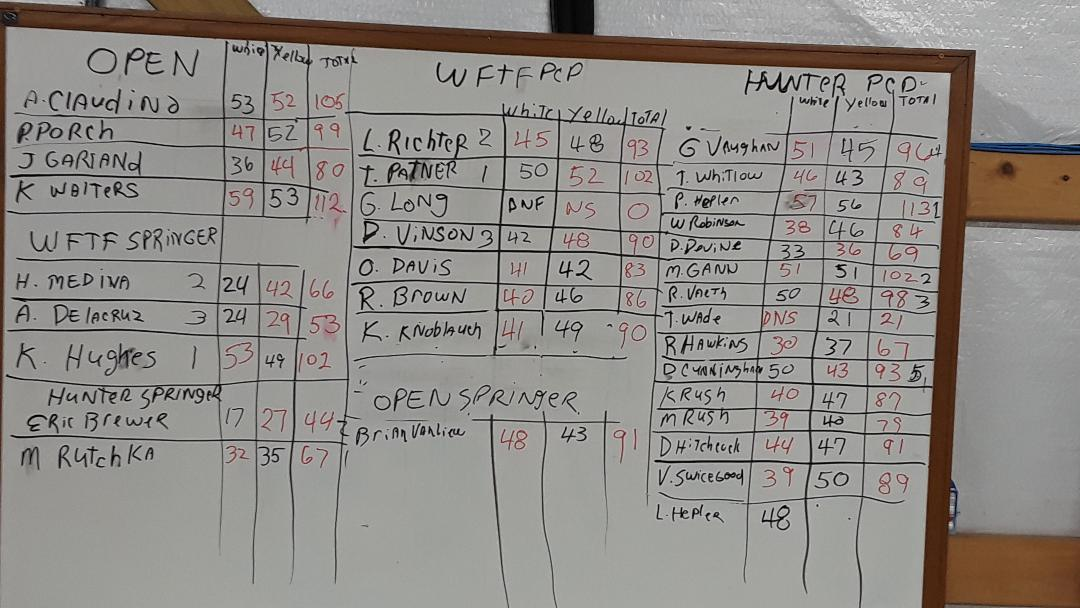 OPEN White Yellow TOTAL
A. Claudino 53 52 105
P. PORCH 47 52 99
J GARLAND 36 44 80
K WALTERS 59 53 112
WFTF SPRINGER
H. MEDINA 2 24 42 66
A. DELACRUZ 3 24 29 53
K. Hughes 1 53 49 102
HUNTER SPRINGER
ERIC BREWER 17 27 44 2
M RUTCHKA 32 35 67 1
WFTF PCP
White Yellow TOTAL
L. RICHTER 2 45 48 93
T. PATNER 1 50 52 102
G. LONG DNF NS 0
D. VINSON 3 42 48 90
O. DAVIS 41 42 83
R. BROWN 40 46 86
K. KNOBLAUCH 41 49 90
OPEN SPRINGER
BRIAN VANLIEW 48 43 91
HUNTER PCP
White Yellow TOTAL
G VAUGHAN 51 45 96 4
T. WHITLOW 46 43 89
P. HEPLER 57 56 113 1
W ROBINSON 38 46 84
D. DEVINE 33 36 69
M. GANN 51 51 102 2
R. VAETH 50 48 98 3
T. WADE DNS 21 21
R HAWKINS 30 37 67
D CUNNINGHAM 50 43 93 5
K RUSH 40 47 87
M RUSH 39 40 79
D HITCHCOCK 44 47 91
V. SWICEGOOD 39 50 89
L. HEPLER 48